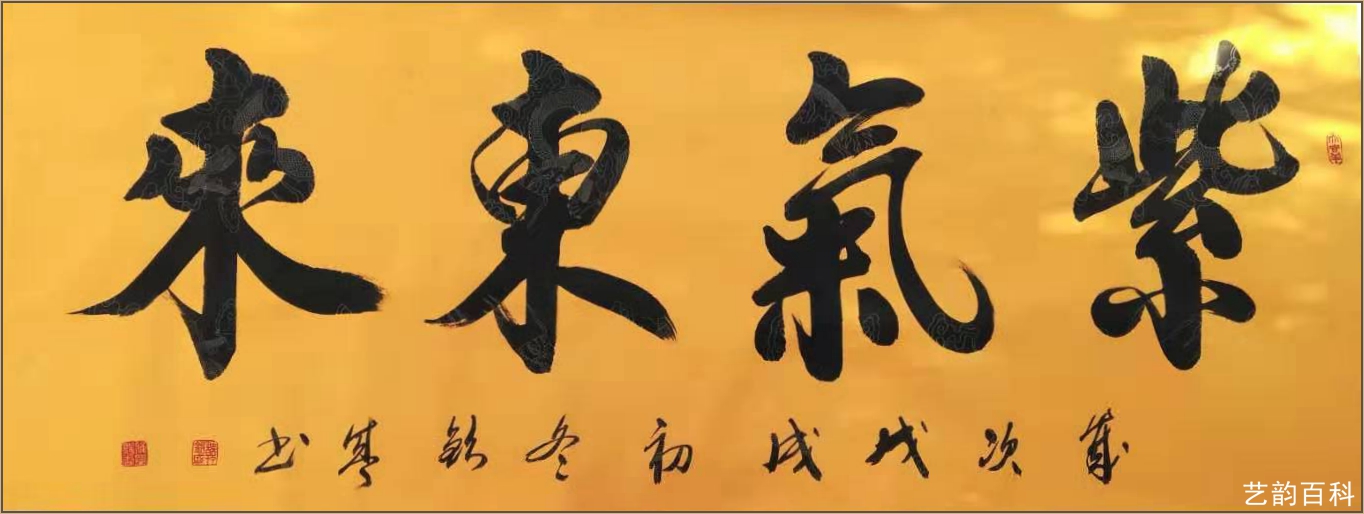 紫氣東來
歲次戊戌初冬
書
艺韵百科